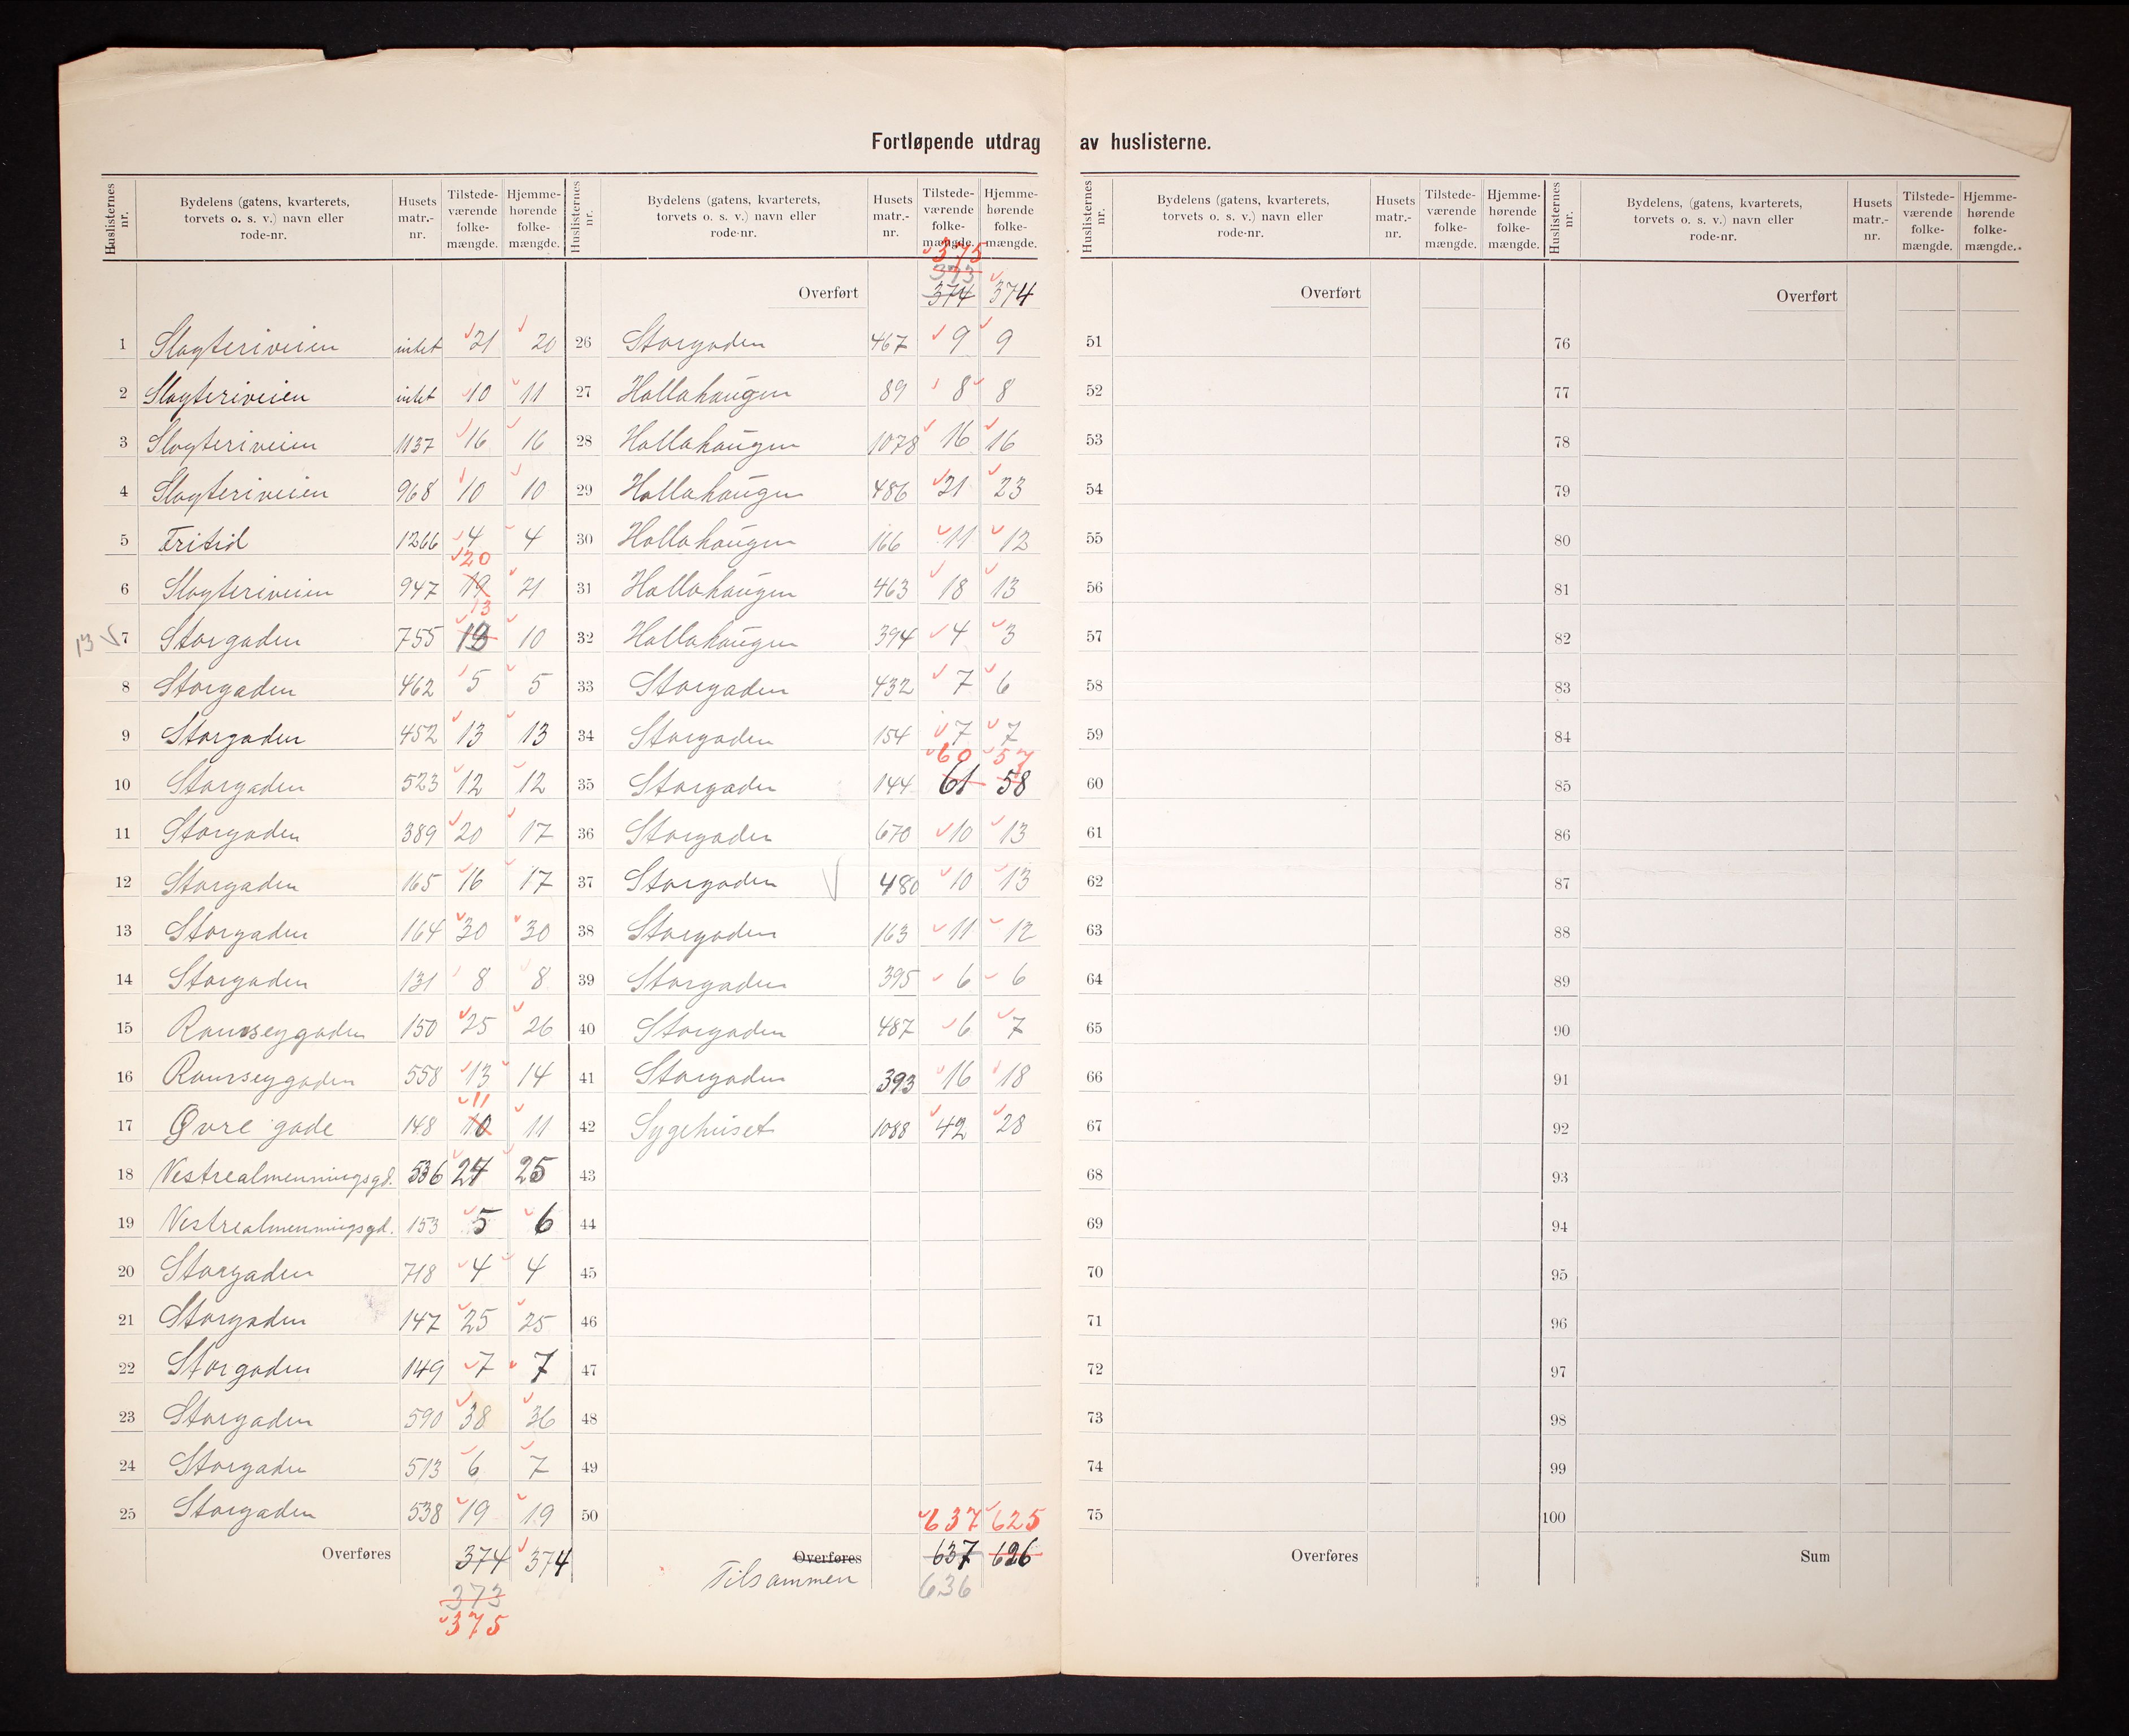 Fortløpende utdrag av huslisterne.
Huslisternes nr. Bydelens (gatens, kvarterets, torvets o. s. v.) navn eller rode-nr. Husets matr.-nr. Tilstede-værende folke-mængde. Hjemme-hørende folke-mængde.
1 Slagteriveien intet 21 20
2 Slagteriveien intet 10 11
3 Slagteriveien 1137 16 16
4 Slagteriveien 968 10 10
5 Fritid 1266 4 4
20
6 Slagteriveien 947 19 21
13
13 7 Storgaden 755 10
8 Storgaden 462 5 5
9 Storgaden 452 13 13
10 Storgaden 523 12 12
11 Storgaden 389 20 17
12 Storgaden 165 16 17
13 Storgaden 164 30 30
14 Storgaden 131 8 8
15 Ramseygaden 150 25 26
16 558 13 14
11
17 Øvre gade 148 10 11
18 Vestrealmenningsgd. 536 24 25
19 Vestrealmenningsgd. 153 5 6
20 Storgaden 718 4 4
21 Storgaden 147 25 25
22 Storgaden 149 7 7
23 Storgaden 590 38 36
24 Storgaden 513 6 7
25 Storgaden 538 19 19
Overføres 374 374
373
375
Huslisternes nr. Bydelens (gatens, kvarterets, torvets o. s. v.) navn eller rode-nr. Husets matr.-nr. Tilstede-værende folke-mængde. Hjemme-hørende folke-mængde.
375
373
Overført 374 374
26 Storgaden 467 9 9
27 Hollahaugen 89 8 8
28 Hollahaugen 1078 16 16
29 Hollahaugen 486 21 23
30 Hollahaugen 166 11 12
31 Hollahaugen 463 18 13
32 Hollahaugen 394 4 3
33 Storgaden 432 7 6
34 Storgaden 154 7 7
60 57
35 Storgaden 144 61 58
36 Storgaden 670 10 13
37 Storgaden 480 10 13
38 Storgaden 163 11 12
39 Storgaden 395 6 6
40 Storgaden 487 6 7
41 Storgaden 393 16 18
42 Sygehuset 1088 42 28
43
44
45
46
47
48
49
50 637 625
Overføres 637 626
Tilsammen 636
Huslisternes nr. Bydelens (gatens, kvarterets, torvets o. s. v.) navn eller rode-nr. Husets matr.-nr. Tilstede-værende folke-mængde. Hjemme-hørende folke-mængde.
Overført
51
52
53
54
55
56
57
58
59
60
61
62
63
64
65
66
67
68
69
70
71
72
73
74
75
Overføres
Huslisternes nr. Bydelens, (gatens, kvarterets, torvets o. s. v.) navn eller rode-nr. Husets matr.-nr. Tilstede-værende folke-mængde. Hjemme-hørende folke-mængde.
Overført
76
77
78
79
80
81
82
83
84
85
86
87
88
89
90
91
92
93
94
95
96
97
98
99
100
Sum